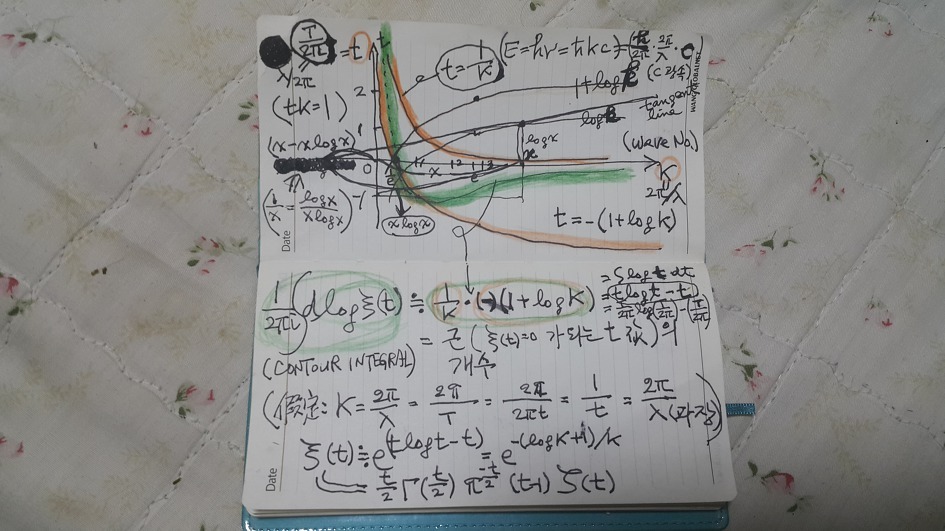 T/2π = t
λ/2π
(tk=1)
t = 1/K
(E=ħν=ħkc)=
(C 광속)
1+log k
tangent line
log k
log x
x
(Wave No.)
K
2π/λ
2
0
-1
e
(x-x log x)
(1/x = log x/x log x)
x log x
t=-(1+log K)
Date
1/2πi ∫d log ξ(t) ≒ 1/K · (-)(1+log K)
= ∫log t dt
= t log t - t
= T/2π log(T/2π) - (T/2π)
(CONTOUR INTEGRAL) = 군(ξ(t)=0 가 되는 t 값)의
개수
(假定: K = 2π/λ = 2π/T = 2π/2πt = 1/t = 2π/λ(파장))
ξ(t)≒e^(t log t-t) = e^-(log K+1)/K
t/2 Γ(t/2) π^-t/2 (t-1) ζ(t)
Date